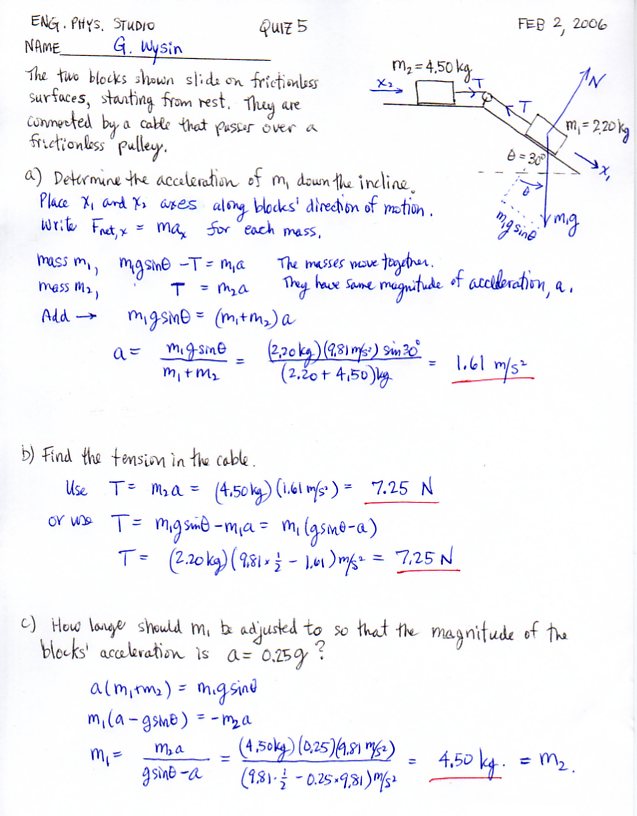 ENG. PHYS. STUDIO QUIZ 5 FEB 2, 2006
NAME G. Wysin
The two blocks shown slide on frictionless
surfaces, starting from rest. They are
connected by a cable that passes over a
frictionless pulley.
m₂ = 4.50 kg
x₂
T
T
N
m₁ = 2.20 kg
θ = 30°
x₁
θ
m₁g sinθ
m₁g
a) Determine the acceleration of m₁ down the incline.
Place x₁ and x₂ axes along blocks' direction of motion.
Write Fnet,x = max for each mass.
mass m₁, m₁g sinθ - T = m₁a The masses move together.
mass m₂, T = m₂a They have same magnitude of acceleration, a.
Add → m₁g sinθ = (m₁+m₂) a
a = m₁g sinθ / m₁+m₂ = (2.20 kg)(9.81 m/s²) sin 30° / (2.20 + 4.50) kg = 1.61 m/s²
b) Find the tension in the cable.
Use T = m₂a = (4.50 kg)(1.61 m/s²) = 7.25 N
or use T = m₁g sinθ - m₁a = m₁(g sinθ - a)
T = (2.20 kg)(9.81 × ½ - 1.61) m/s² = 7.25 N
c) How large should m₁ be adjusted to so that the magnitude of the
blocks' acceleration is a = 0.25g ?
a(m₁+m₂) = m₁g sinθ
m₁(a - g sinθ) = -m₂a
m₁ = m₂a / g sinθ - a = (4.50 kg)(0.25)(9.81 m/s²) / (9.81 · ½ - 0.25 × 9.81) m/s² = 4.50 kg. = m₂.